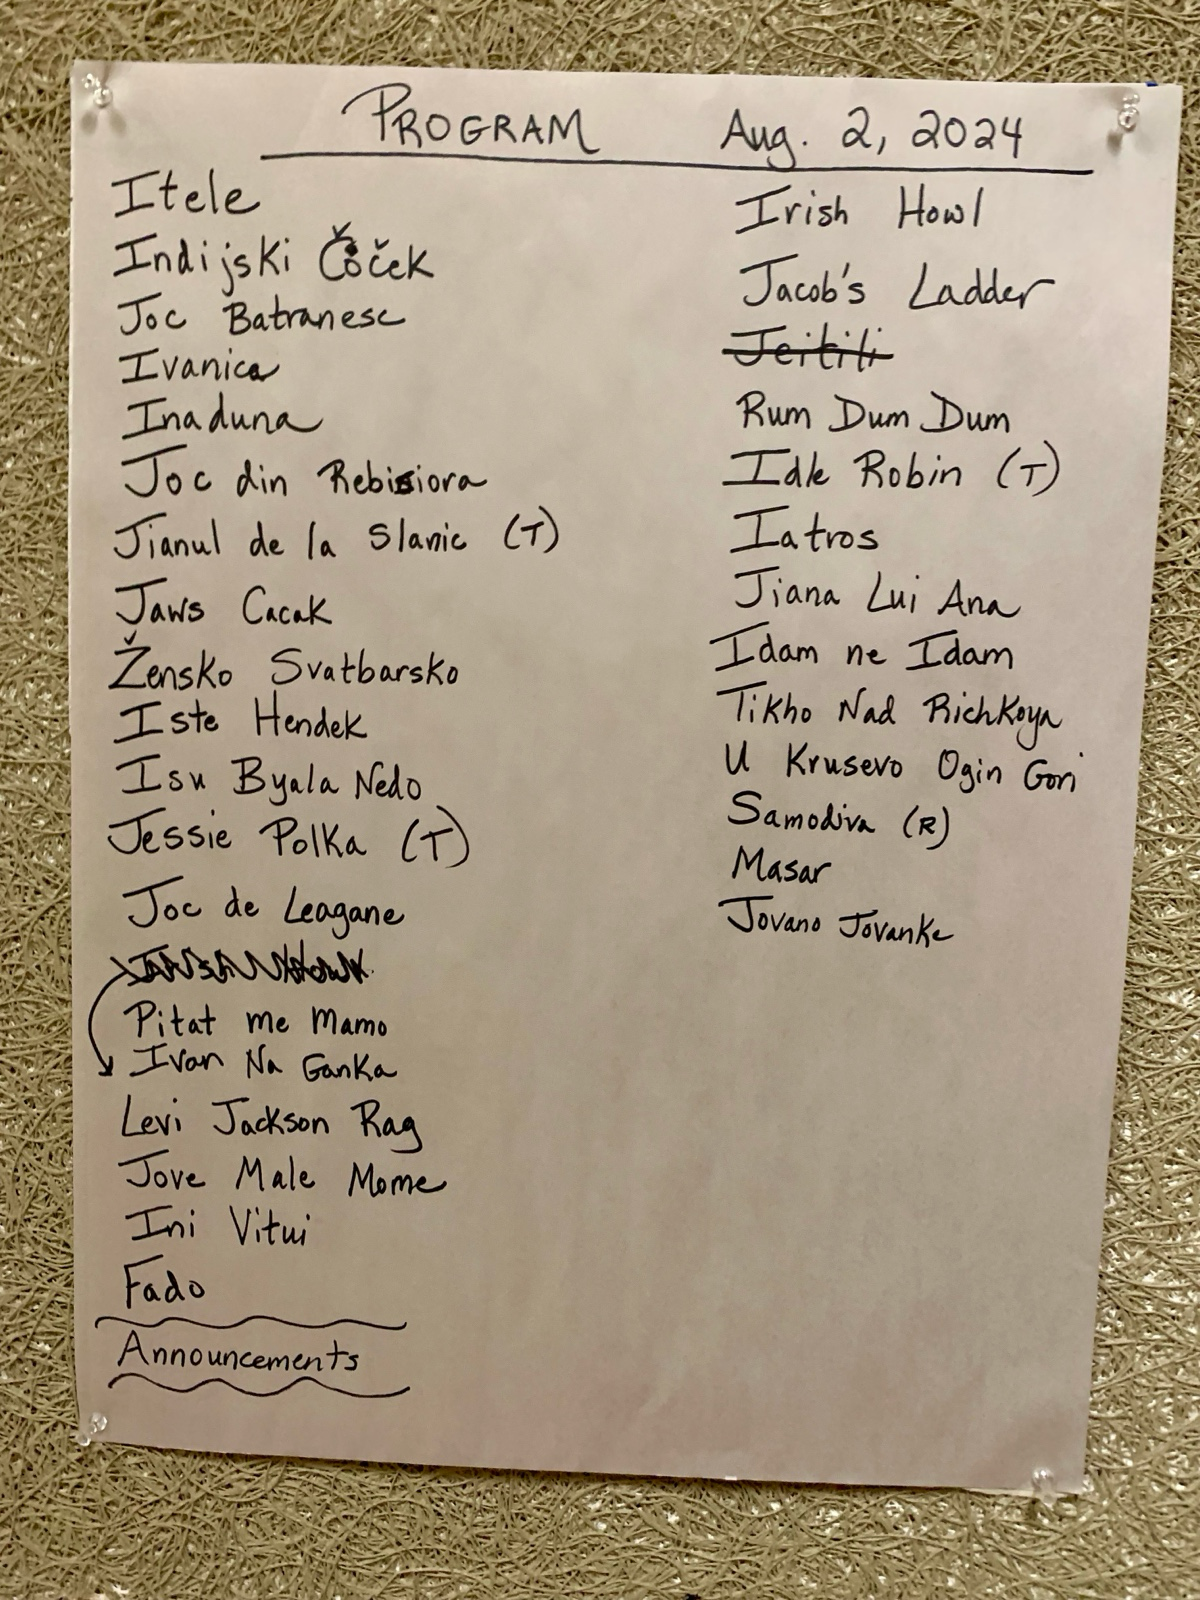 PROGRAM Aug. 2, 2024
Itele
Indijski Čoček
Joc Batranesc
Ivanica
Inaduna
Joc din Rebisiora
Jianul de la Slanic (T)
Jaws Cacak
Žensko Svatbarsko
Iste Hendek
Isu Byala Nedo
Jessie Polka (T)
Joc de Leagane
Pitat me Mamo
Ivan Na Ganka
Levi Jackson Rag
Jove Male Mome
Ini Vitui
Fado
Announcements
Irish Howl
Jacob's Ladder
Jeitili
Rum Dum Dum
Idle Robin (T)
Iatros
Jiana Lui Ana
Idam ne Idam
Tikho Nad Richkoya
U Krusevo Ogin Gori
Samodiva (R)
Masar
Jovano Jovanke